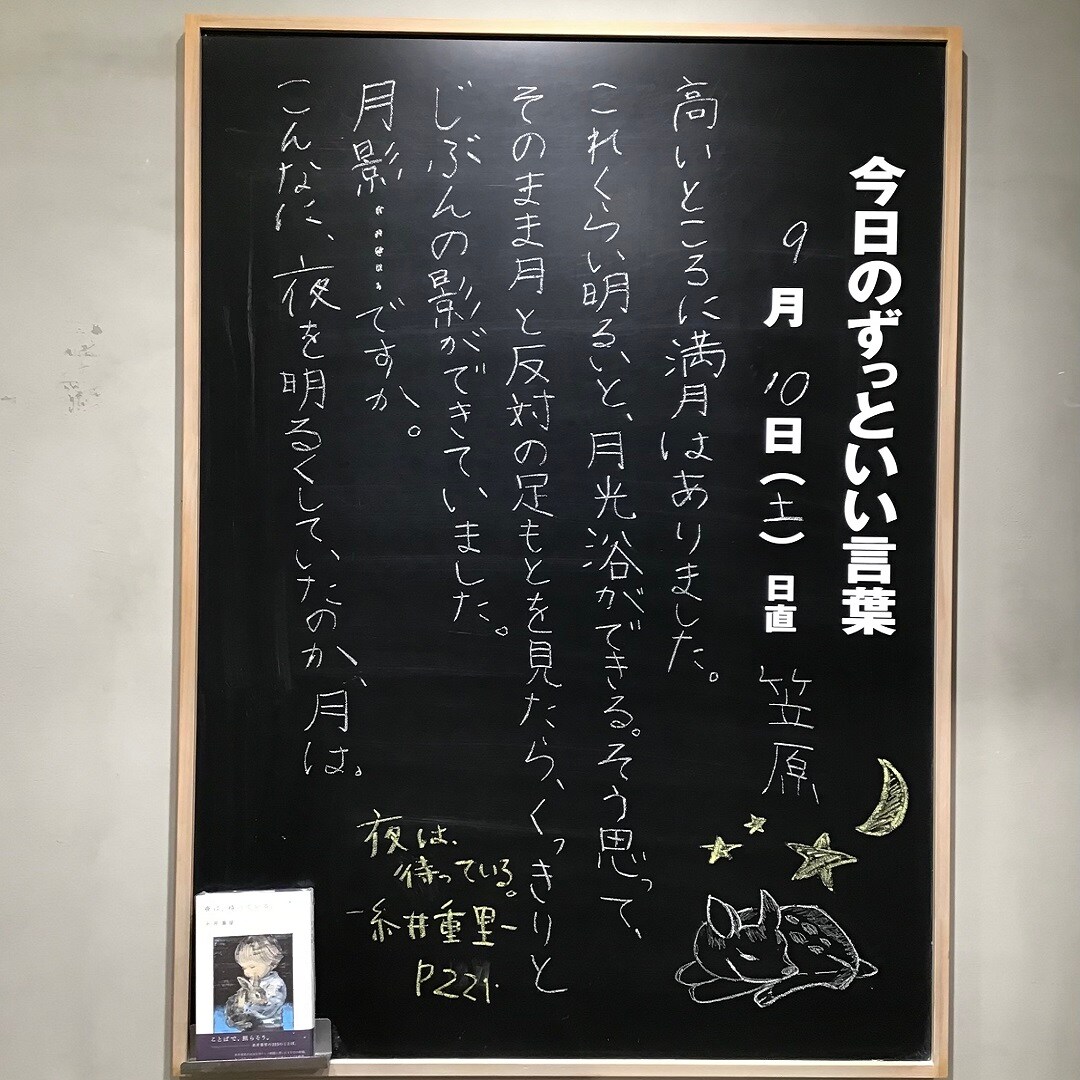 今日のずっといい言葉
9月10日(土) 日直 笠原
高いところに満月はありました。
これくらい明るいと、月光浴ができる。そう思って、
そのまま月と反対の足もとを見たら、くっきりと
じぶんの影ができていました。
月影・・・・・ですか、。
こんなに、夜を明るくしていたのか、月は。
夜は、
待っている。
－糸井重里－
P221.
ことばで、照らそう。